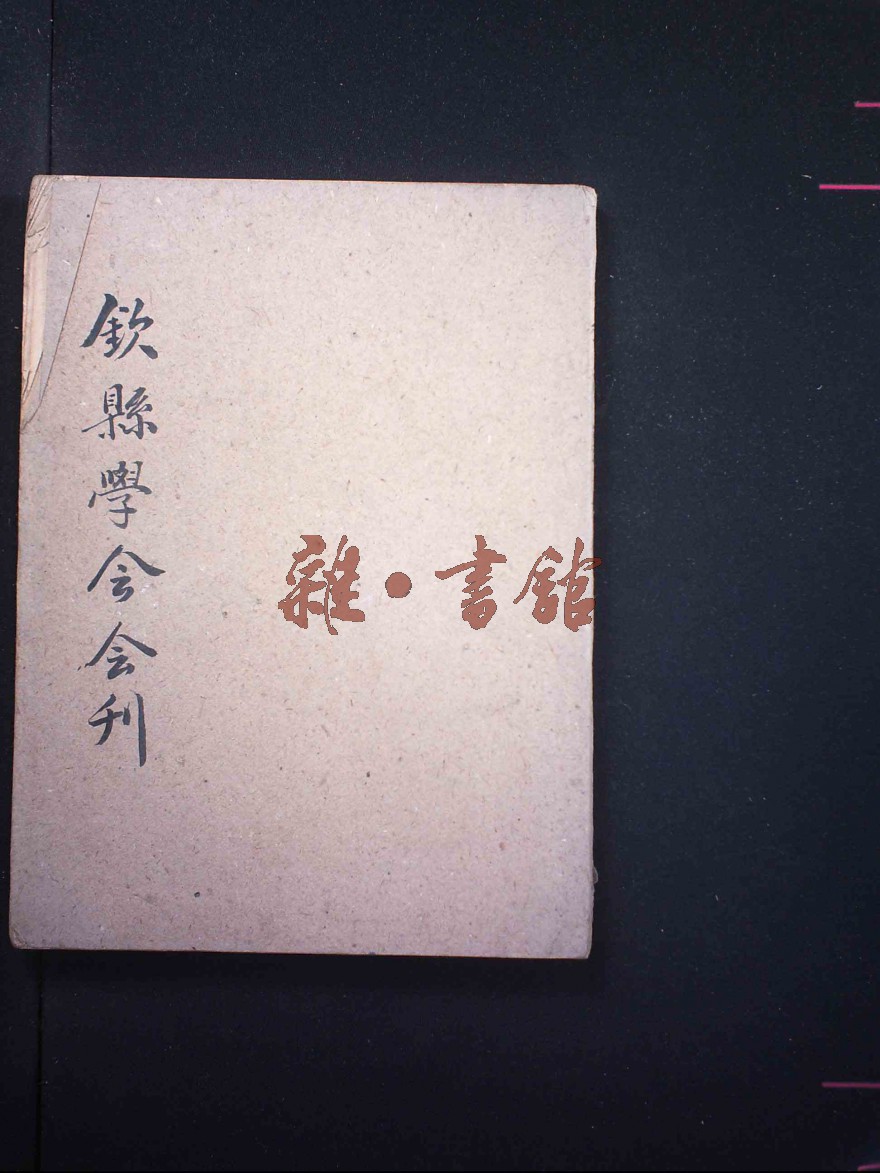 欽縣學会会刊
雜·書館